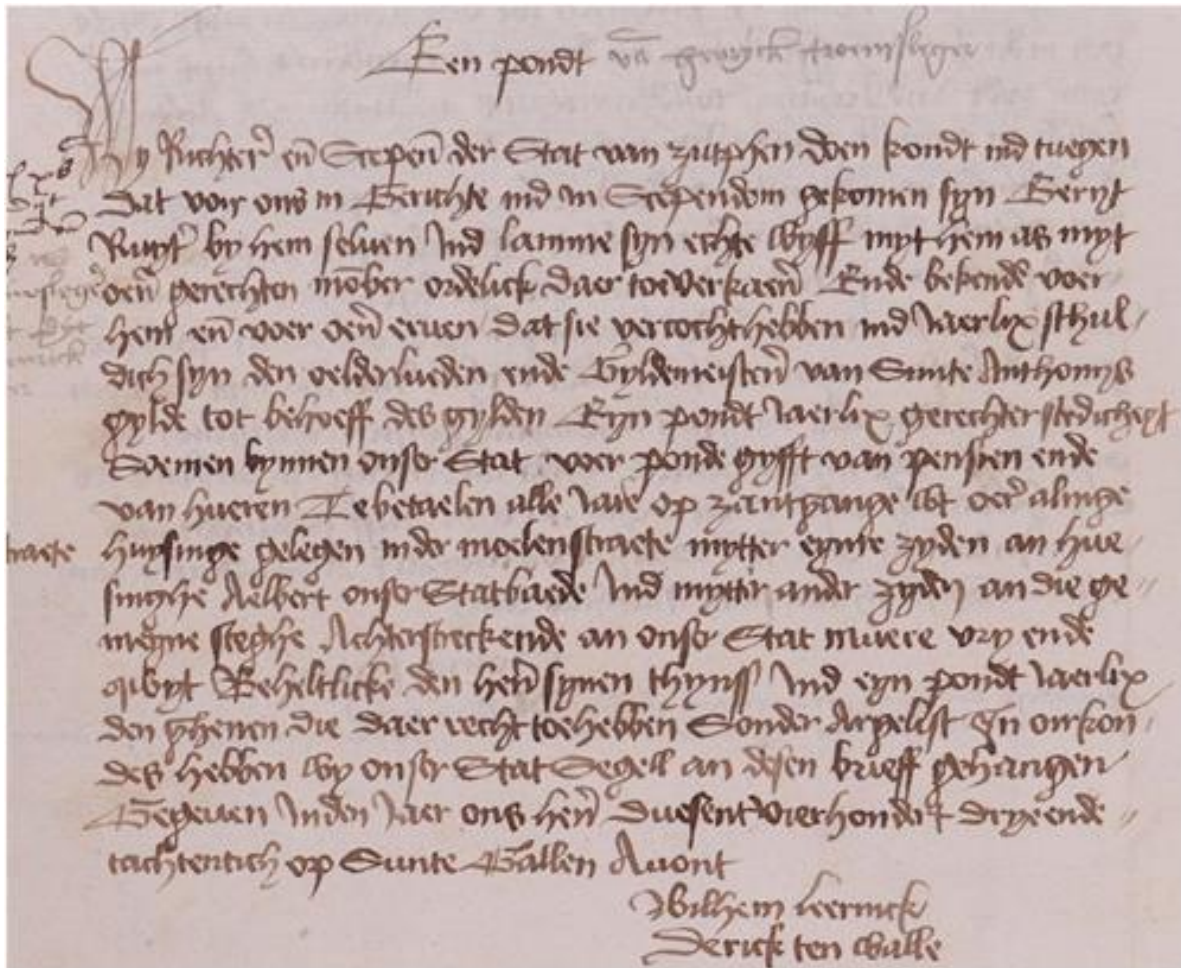 Een pondt va
Wy Richter en Scepen der Stat van zutphen doen kondt ind tuegen
dat voir ons in Gerichte ind in Scependom gekomen syn Gerryt
by hem seluen Ind lamme syn echte wyff myt hem as myt
oen gerechten momber ordelick daer toe verkaeren Ende bekende voer
hem en voer oen eruen dat sie vercocht hebben ind Jaerlix schul
dich syn den oelderlueden ende Gyldemeisteren van Sunte Anthonys
gylde tot behoeff des gylden Eyn pondt Jaerlix gerechter
bynnen onser Stat voer ponde gyfft van pensien ende
van hueren Te betaelen alle Jaere op alinge
huysinge gelegen inder moelenstraete mytter eynre zyden an hue
singhe Aelbert onser Statbaede Ind mytter ander zyden an die ge
meyne steghe Achterstreckende an onser Stat muere vry ende
qwyt Beheltlicke den heren synen thynss Ind eyn pondt Jaerlix
den ghenen die daer recht toe hebben Sonder Argelist In orkon
des hebben wy onser Stat Segell an desen brieff gehangen
Gegeuen Inden Jaer ons heren Duesent vierhondert drye ende
tachtentich op Sunte Gallen Auont
straete
Wilhem leerinck
Derick ten walle